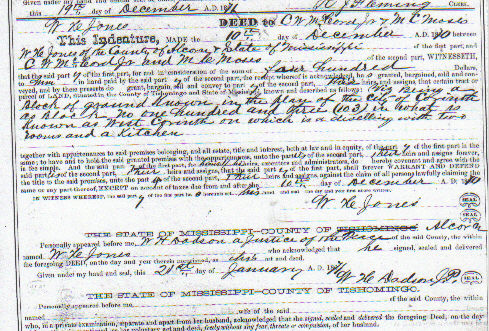 this 19th day of December A.D. 18 Fleming CLERK.
W He Jones DEED to C W McCord Jr & M C Moses
This Indenture, MADE the 10th day of December A.D. 1870 between
W He Jones of the County of Alcorn & State of Mississippi of the first part, and
C W McCord Jr and M C Moses of the second part, WITNESSETH,
that the said part y of the first part, for and in consideration of the sum of Four hundred Dollars,
to in hand paid by the said part of the second part, the receipt whereof is acknowledged, ha granted, bargained, sold and con-
veyed, and by these presents do grant, bargain, sell and convey to part of the second part, heirs and assigns, that certain tract or
parcel of LAND, situated in the County of Tishomingo and State of Mississippi, known and described as follows: Viz Being a
Block of ground known in the plan of the City of Corinth
as Block No one hundred and three (103) in what is
known as West Corinth on which is a dwelling with two
rooms and a Kitchen
together with appurtenances to said premises belonging, and all estate, title and interest, both at law and in equity, of the part y of the first part in the
same; to have and to hold the said granted premises with the appurtenances, unto the part of the second part, Their heirs and assigns,
in fee simple. And the said part y of the first part, for heirs, executors and administrators, do hereby covenant and agree with the
said part of the second part, Their heirs and assigns, that the said part y of the first part, shall forever WARRANT AND DEFEND
the title to the said premises, unto the part of the second part, Their heirs and assigns, against the claim of all persons lawfully claiming the
same or any part thereof, EXCEPT on account of taxes due from and after the 10th day of December A.D. 1870
IN WITNESS WHEREOF, the said part y of the first part hand and seal the day and year first above written.
W He Jones SEAL
SEAL
THE STATE OF MISSISSIPPI-COUNTY OF TISHOMINGO. Alcorn
Personally appeared before me, W H Dodson a Justice of the Peace of the said County, the within
named W He Jones who acknowledged that he signed, sealed and delivered
the foregoing DEED, on the day and year therein mentioned, as his act and deed.
Given under my hand and seal, this 21st day of January A.D. 187
W H Dodson J.P. SEAL
THE STATE OF MISSISSIPPI-COUNTY OF TISHOMINGO.
Personally appeared before me, of the said County, the within
named wife of the said
who, in a private examination, separate and apart from her husband, acknowledged that she signed, sealed and delivered the foregoing Deed, on the day
voluntary act and deed, freely without any fear, threats or compulsion, of her husband.